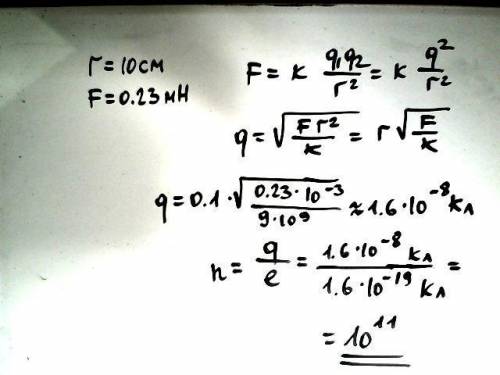 r=10см
F=0.23мН
F=к q₁q₂/r² = к q²/r²
q=√(Fr²/к) = r√(F/к)
q=0.1·√(0.23·10⁻³/9·10⁹) ≈ 1.6·10⁻⁸ кл
n = q/e = 1.6·10⁻⁸ кл/1.6·10⁻¹⁹ кл =
= 10¹¹